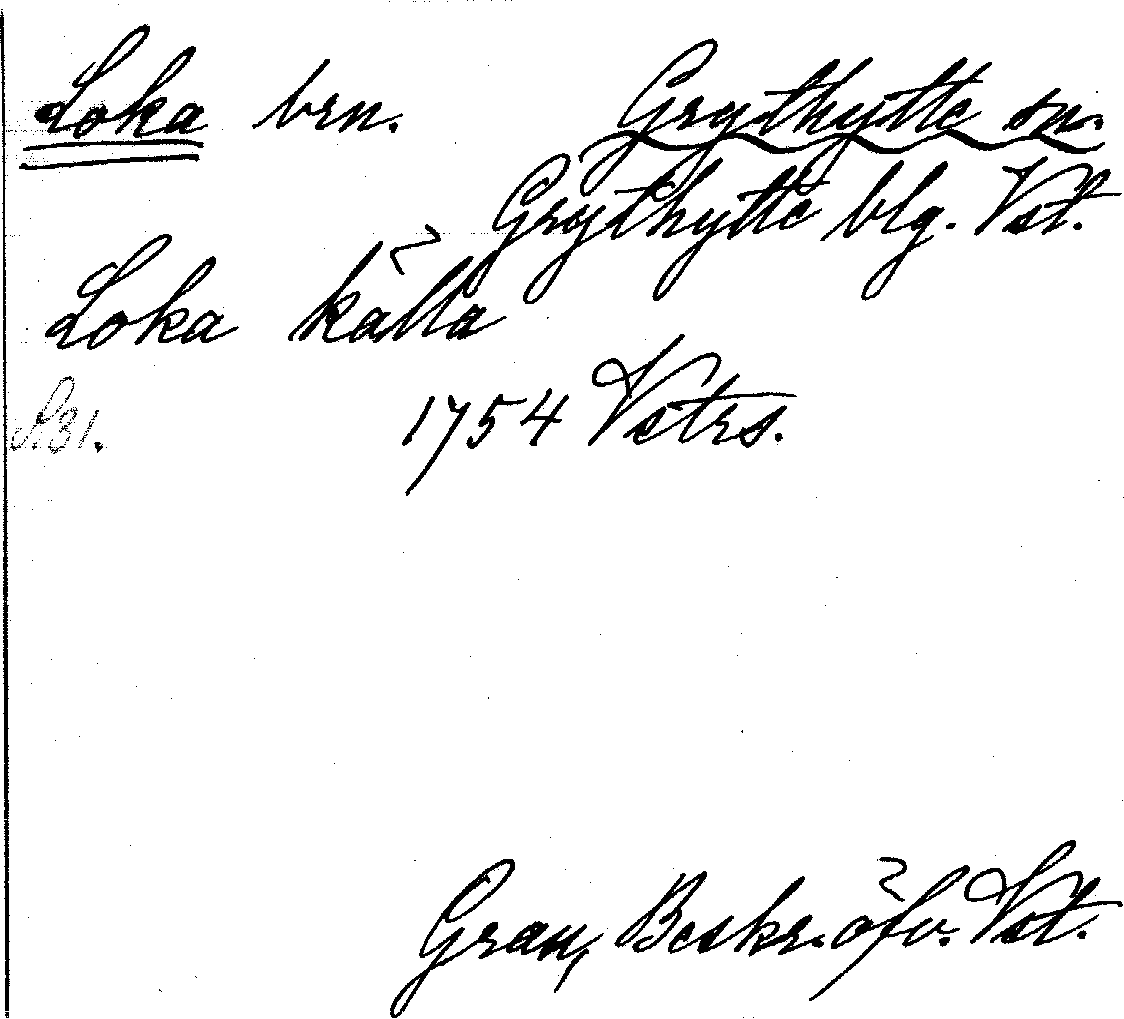 Loka brn. Grythytte sn.
Grythytte blg. Vst.
Loka källa
S. 31. 1754 Vstrs.
Grau, Beskr. öfv. Vst.